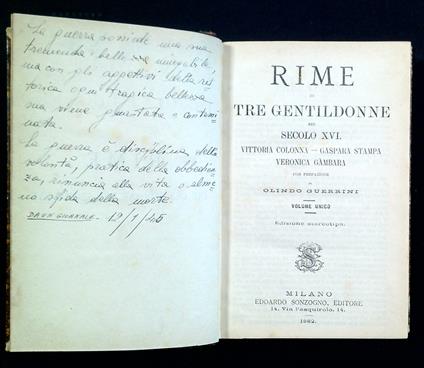 La guerra
tremenda bellezza
ma con gli aggettivi della re-
torica ogni tragica bellezza
ma viene guastata e contami-
nata.
La guerra è disciplina della
volontà, pratica della obbedien-
za, rinuncia alla vita o alme-
no sfida della morte.
DA UN GIORNALE - 12/1/45
RIME
DI
TRE GENTILDONNE
DEL
SECOLO XVI.
VITTORIA COLONNA — GASPARA STAMPA
VERONICA GÀMBARA
CON PREFAZIONE
DI
OLINDO GUERRINI
VOLUME UNICO
Edizione stereotipa.
MILANO
EDOARDO SONZOGNO, EDITORE
14. Via Pasquirolo. 14.
1882.